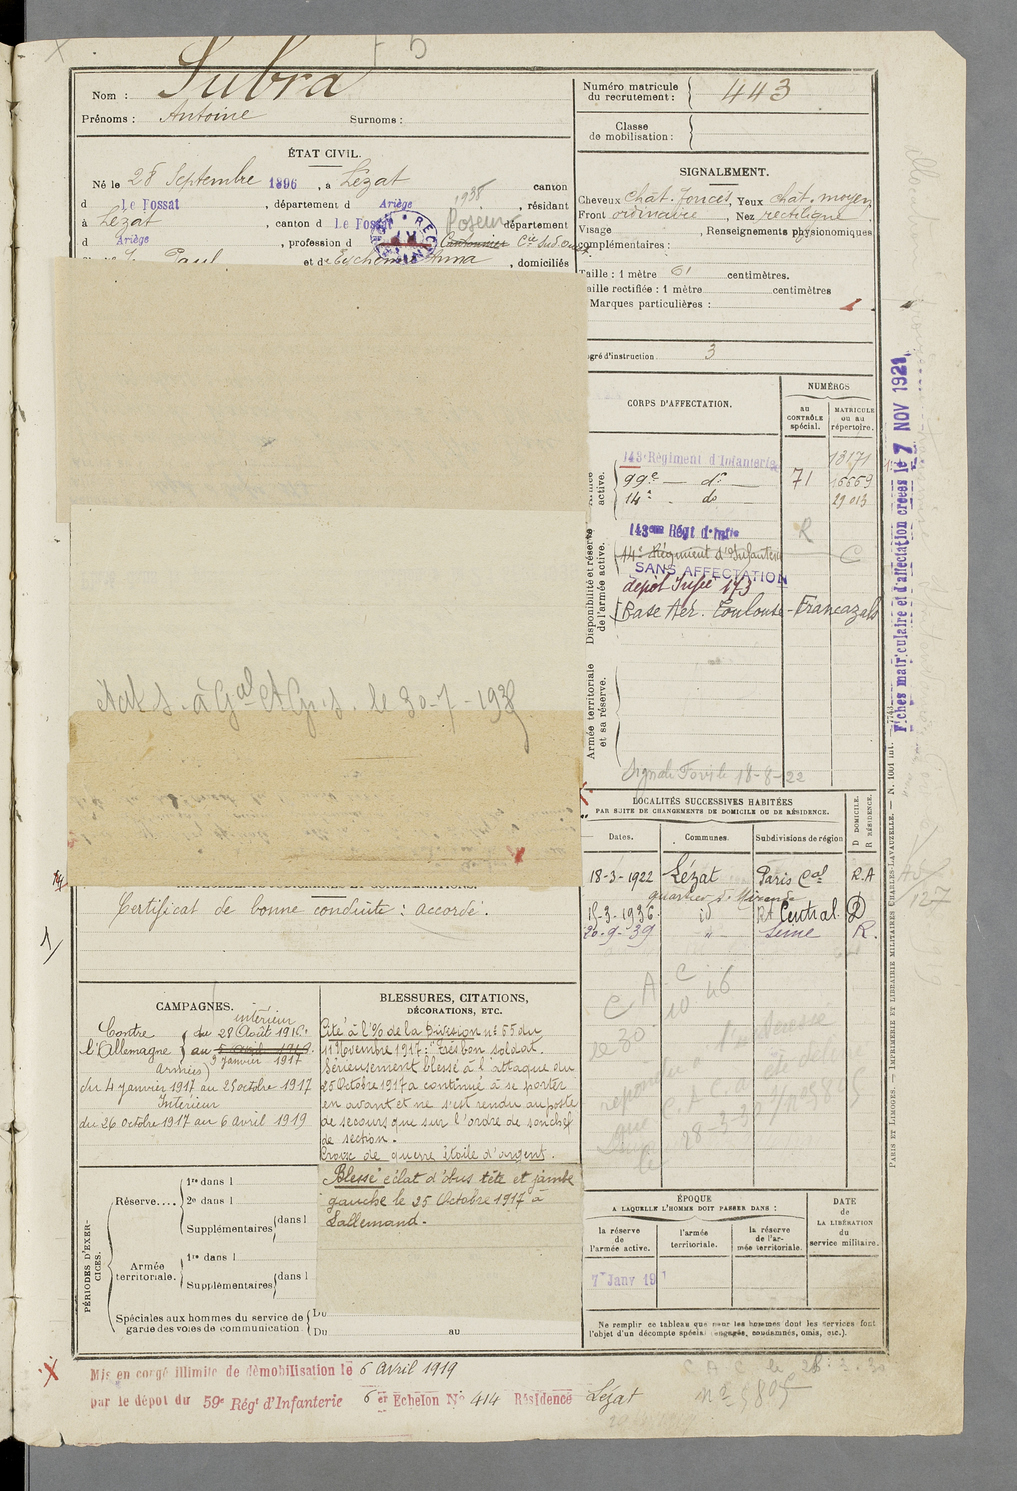 Subra
Nom :
Prénoms : Antoine Surnoms :
Numéro matricule du recrutement : 443
Classe de mobilisation :
ÉTAT CIVIL.
Né le 28 Septembre 1896, à Lézat canton
d Le Fossat, département d Ariège, résidant
à Lézat, canton d Le Fossat département
1935
Poseur
d Ariège, profession d Cantonnier Cie Sud Ouest
Paul et de Eychenne Anna, domiciliés
SIGNALEMENT.
Cheveux chât. foncés, Yeux chât. moyen
Front ordinaire, Nez rectiligne
Visage , Renseignements physionomiques
complémentaires :
Taille : 1 mètre 61 centimètres.
Taille rectifiée : 1 mètre centimètres
Marques particulières :
degré d'instruction. 3
CORPS D'AFFECTATION.
NUMÉROS
au CONTRÔLE spécial.
MATRICULE ou au répertoire.
Armée active.
143e Régiment d'Infanterie 13171
99e — do 71 16669
14e - do 29 013
Disponibilité et réserve de l'armée active.
143ème Régt d'Infie R
14e Régiment d'Infanterie C
SANS AFFECTATION
dépôt Infie 173
Base Aér. Toulouse - Francazals
Armée territoriale et sa réserve.
18-8-22
Fiches matriculaire et d'affectation créées le 7 NOV 1921
états S. à Gal et Gr. S. le 30-7-193
LOCALITÉS SUCCESSIVES HABITÉES
PAR SUITE DE CHANGEMENTS DE DOMICILE OU DE RÉSIDENCE.
Dates. Communes. Subdivisions de région D DOMICILE. R RÉSIDENCE.
18-3-1922 Lézat Paris Cal R.A
quartier d. Mirande
15-3-1936 id RA Central. D
20-9-39 " Seine R.
ANTÉCÉDENTS JUDICIAIRES ET CONDAMNATIONS.
Certificat de bonne conduite : accordé.
1/
CAMPAGNES.
intérieur
Contre l'Allemagne du 28 Août 1916
au 5 avril 1919.
3 janvier 1917
Armées
du 4 janvier 1917 au 25 octobre 1917
Intérieur
du 26 octobre 1917 au 6 avril 1919
BLESSURES, CITATIONS,
DÉCORATIONS, ETC.
Cité à l'% de la Division n° 55 du
11 Novembre 1917 : "Très bon soldat.
Sérieusement blessé à l'attaque du
25 Octobre 1917 a continué à se porter
en avant et ne s'est rendu au poste
de secours que sur l'ordre de son chef
de section.
Croix de guerre étoile d'argent.
Blessé éclat d'obus tête et jambe
gauche le 25 Octobre 1917 à
Lallemand.
C. A. C
le 30 10 46
l'intéressé
28-3-39
PÉRIODES D'EXERCICES.
Réserve....
1re dans l
2e dans l
Supplémentaires dans l
Armée territoriale.
1re dans l
Supplémentaires dans l
Spéciales aux hommes du service de garde des voies de communication
Du
Du au
ÉPOQUE
A LAQUELLE L'HOMME DOIT PASSER DANS :
la réserve de l'armée active.
l'armée territoriale.
la réserve de l'armée territoriale.
DATE DE LA LIBÉRATION du service militaire.
7 Janv 19
Ne remplir ce tableau que pour les hommes dont les services font
l'objet d'un décompte spécial (engagés, condamnés, omis, etc.).
PARIS ET LIMOGES. — IMPRIMERIE ET LIBRAIRIE MILITAIRES CHARLES-LAVAUZELLE. — N. 1001 int.
Mis en congé illimité de démobilisation le 6 avril 1919
par le dépôt du 59e Régt d'Infanterie 6 er Echelon No 414 Résidence Lézat
C A C le 28.3.39
n° 5805